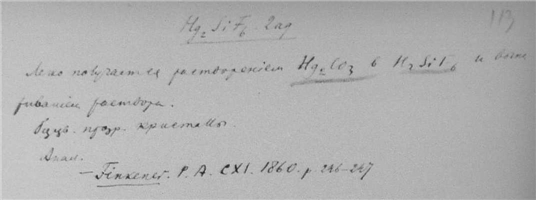 113
Hg₂SiF₆·2aq
Легко получается растворением Hg₂CO₃ в H₂SiF₆ и выпа
риванием раствора.
Бесцв. прозр. кристаллы.
Анал.
— Finkener. P. A. CXI. 1860. p. 246–247